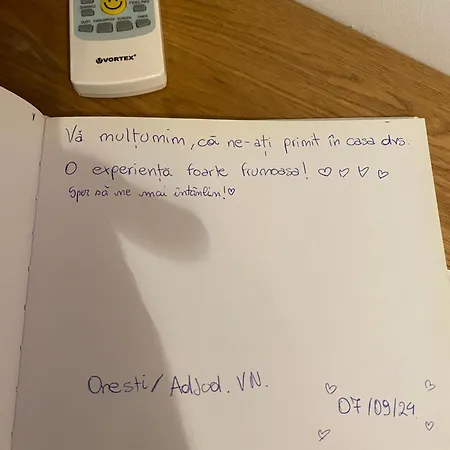 VORTEX
Vă mulțumim, că ne-ați primit în casa dvs.
O experiența foarte frumoasa! ♡ ♡ ♡ ♡
Sper să ne mai întânlin!♡
Onesti/ Adjod. VN.
07/09/24